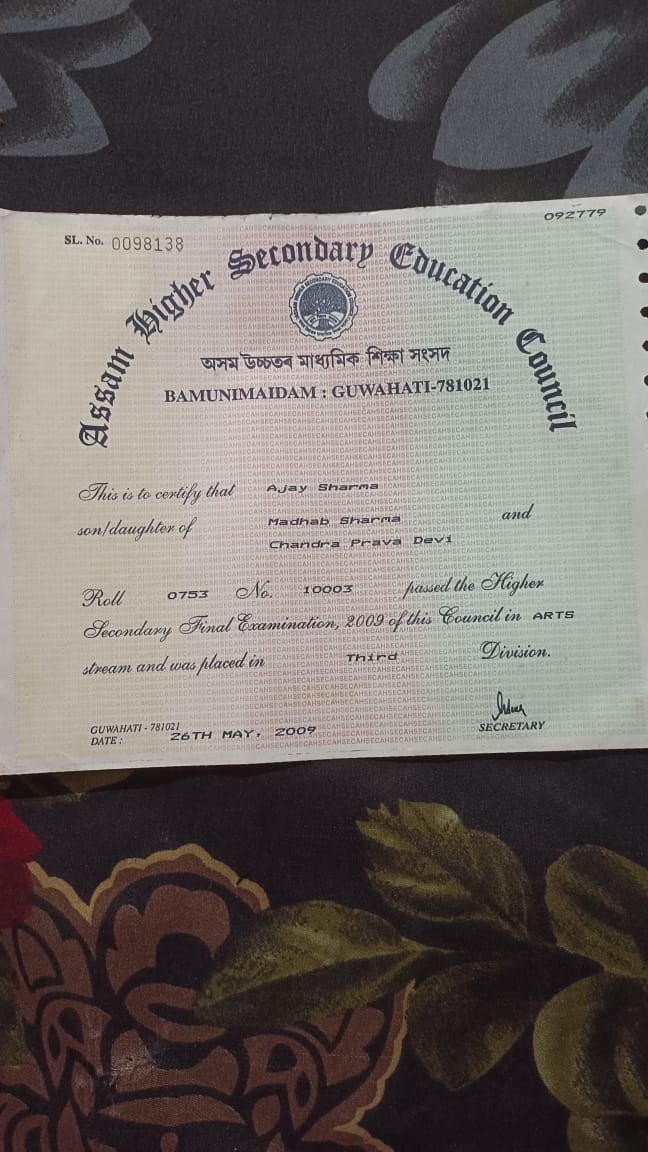 092779
SL. No. 0098138
Assam Higher Secondary Education Council
অসম উচ্চতৰ মাধ্যমিক শিক্ষা সংসদ
BAMUNIMAIDAM : GUWAHATI-781021
This is to certify that Ajay Sharma
son/daughter of Madhab Sharma and
Chandra Prava Devi
Roll 0753 No. 10003 passed the Higher
Secondary Final Examination, 2009 of this Council in ARTS
stream and was placed in Third Division.
GUWAHATI - 781021
DATE : 26TH MAY, 2009
SECRETARY